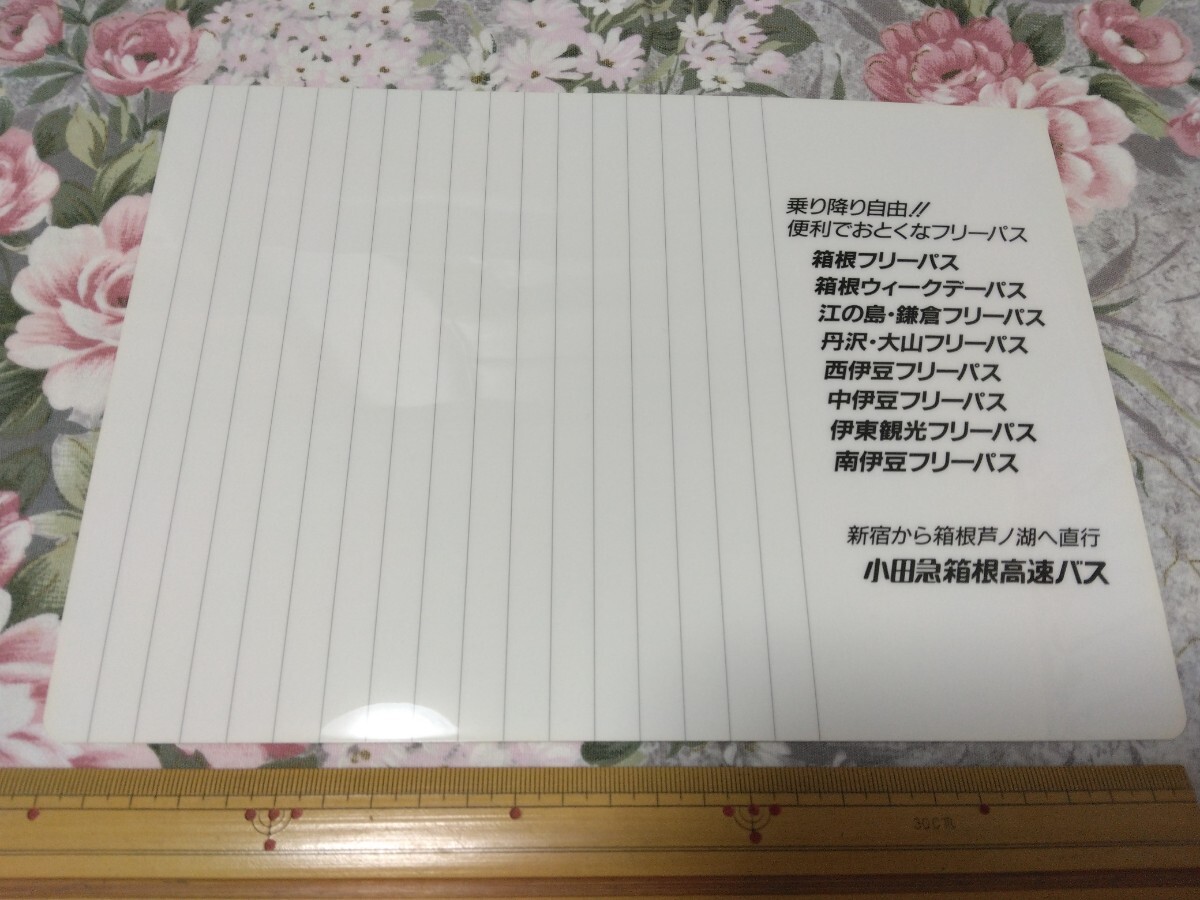 乗り降り自由!!
便利でおとくなフリーパス
箱根フリーパス
箱根ウィークデーパス
江の島・鎌倉フリーパス
丹沢・大山フリーパス
西伊豆フリーパス
中伊豆フリーパス
伊東観光フリーパス
南伊豆フリーパス
新宿から箱根芦ノ湖へ直行
小田急箱根高速バス